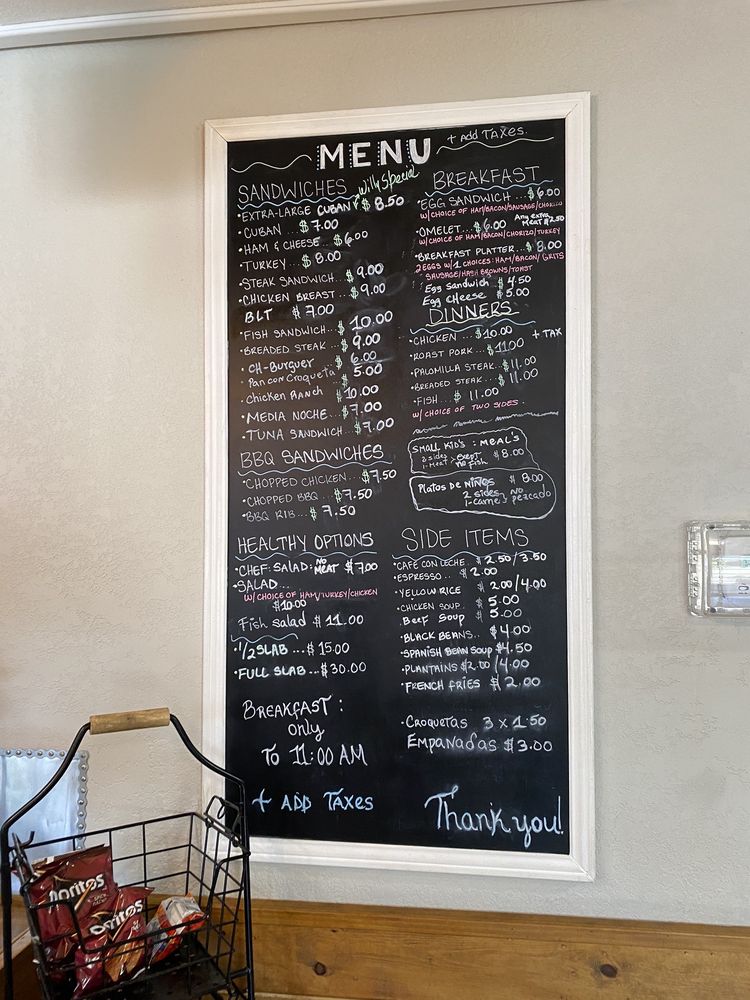 MENU
+ Add TAXES.
SANDWICHES
Willy Special
• EXTRA-LARGE CUBAN $ 8.50
• CUBAN ... $ 7.00
• HAM & CHEESE ... $ 6.00
• TURKEY ... $ 8.00
• STEAK SANDWICH ... $ 9.00
• CHICKEN BREAST ... $ 9.00
BLT $ 7.00
• FISH SANDWICH ... $ 10.00
• BREADED STEAK ... $ 9.00
• CH-Burguer $ 6.00
• Pan con Croqueta $ 5.00
• Chicken Ranch $ 10.00
• MEDIA NOCHE ... $ 7.00
• TUNA SANDWICH ... $ 7.00
BBQ SANDWICHES
• CHOPPED CHICKEN ... $ 7.50
• CHOPPED BBQ ... $ 7.50
• BBQ RIB ... $ 7.50
HEALTHY OPTIONS
• CHEF: SALAD: NO MEAT $ 7.00
• SALAD ...
W/ CHOICE OF HAM/TURKEY/CHICKEN
$10.00
Fish salad $ 11.00
• 1/2 SLAB ... $ 15.00
• FULL SLAB ... $ 30.00
BREAKFAST :
only
To 11:00 AM
+ ADD TAXES
BREAKFAST
• EGG SANDWICH ... $ 6.00
W/ CHOICE OF HAM/BACON/SAUSAGE/CHORIZO
• OMELET ... $ 6.00 Any extra MEAT $2.50
W/ CHOICE OF HAM/BACON/CHORIZO/TURKEY
• BREAKFAST PLATTER ... $ 8.00
2 EGGS W/ 1 CHOICES: HAM/BACON/GRITS
SAUSAGE/HASH BROWNS/TOAST
Egg Sandwich $ 4.50
Egg CHeese $ 5.00
DINNERS
• CHICKEN ... $ 10.00 + TAX
• ROAST PORK ... $ 11.00
• PALOMILLA STEAK ... $ 11.00
• BREADED STEAK ... $ 11.00
• FISH ... $ 11.00
W/ CHOICE OF TWO SIDES.
SMALL KID'S : MEAL'S
2 sides
1-Meat > exept no Fish $ 8.00
Platos DE NIÑOS $ 8.00
2 sides NO
1-carne pezcado
SIDE ITEMS
• CAFE CON LECHE .. $ 2.50 / 3.50
• ESPRESSO .. $ 2.00
• YELLOW RICE $ 2.00 / 4.00
• CHICKEN SOUP . $ 5.00
. Beef Soup $ 5.00
• BLACK BEANS .. $ 4.00
• SPANISH BEAN SOUP $ 4.50
• PLANTAINS $2.00 / 4.00
• FRENCH FRIES $ 2.00
• Croquetas 3 x 1.50
Empanadas $ 3.00
Thank you!
Doritos
Doritos